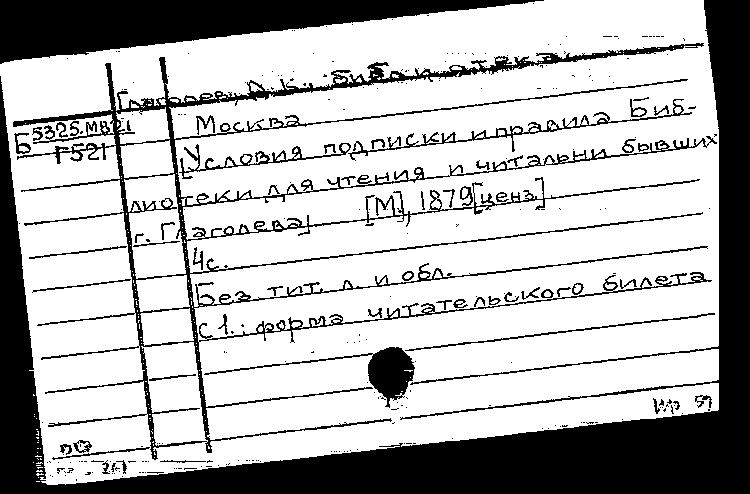 Глаголев, Д. К.; библиотека.
Б 5325.MB21
Г521
Москва
[Условия подписки и правила Биб-
лиотеки для чтения и читальни бывших
г. Глаголева] [М], 1879 [ценз]
4с.
Без тит. л. и обл.
с 1.: форма читательского билета